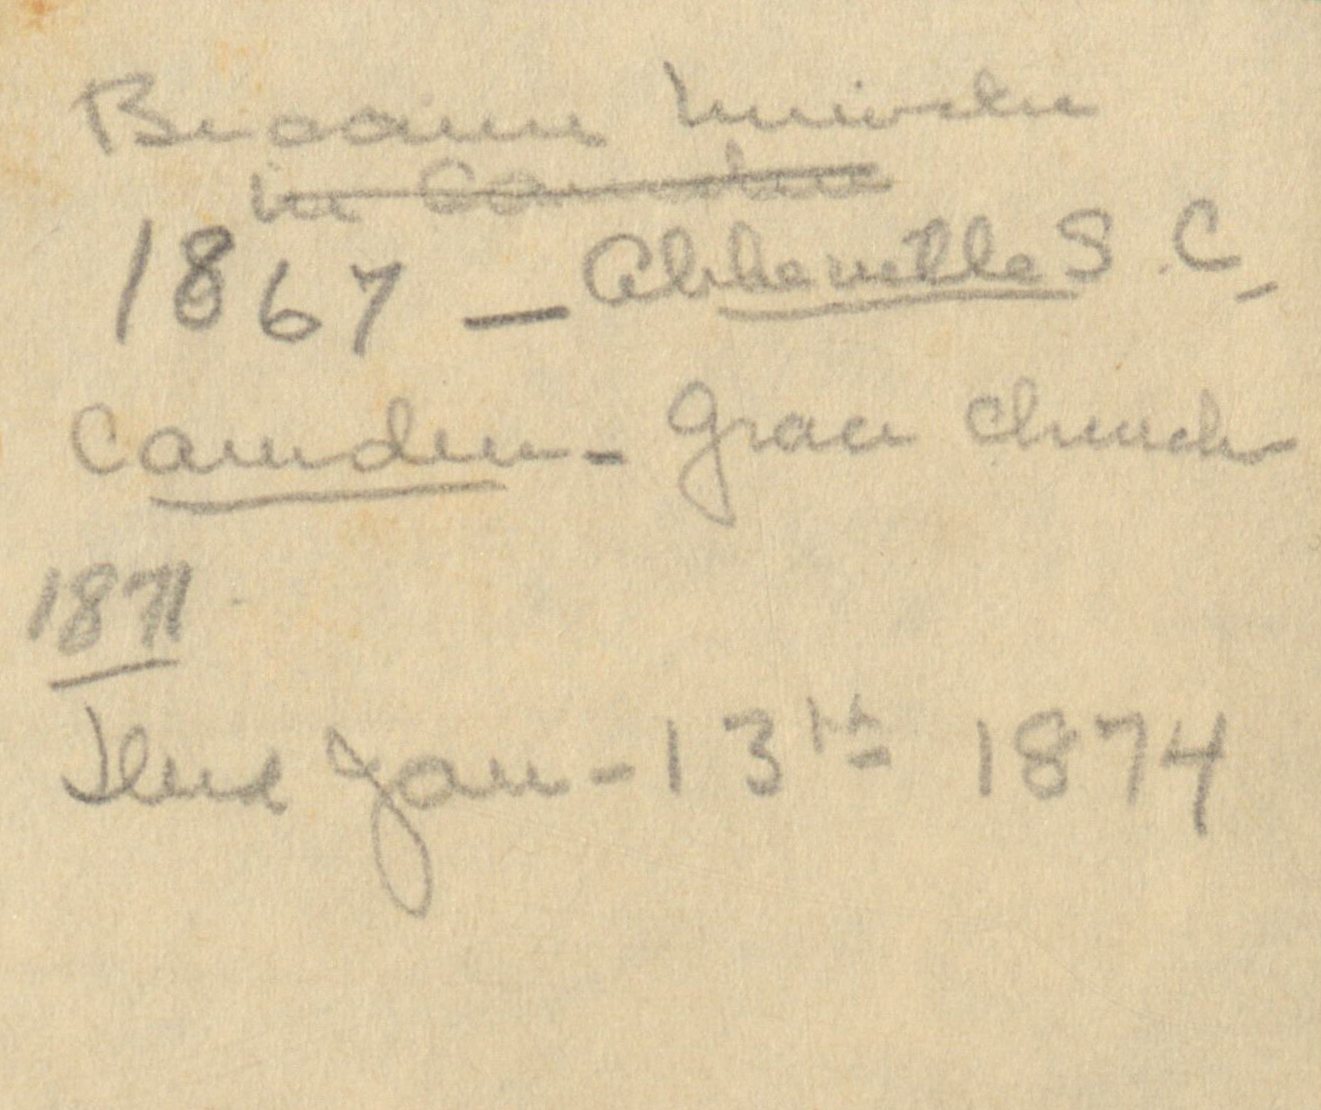 Became Minister
in Camden
1867 — Abbeville S.C.
Camden - Grace Church
1871
Died Jan - 13th 1874